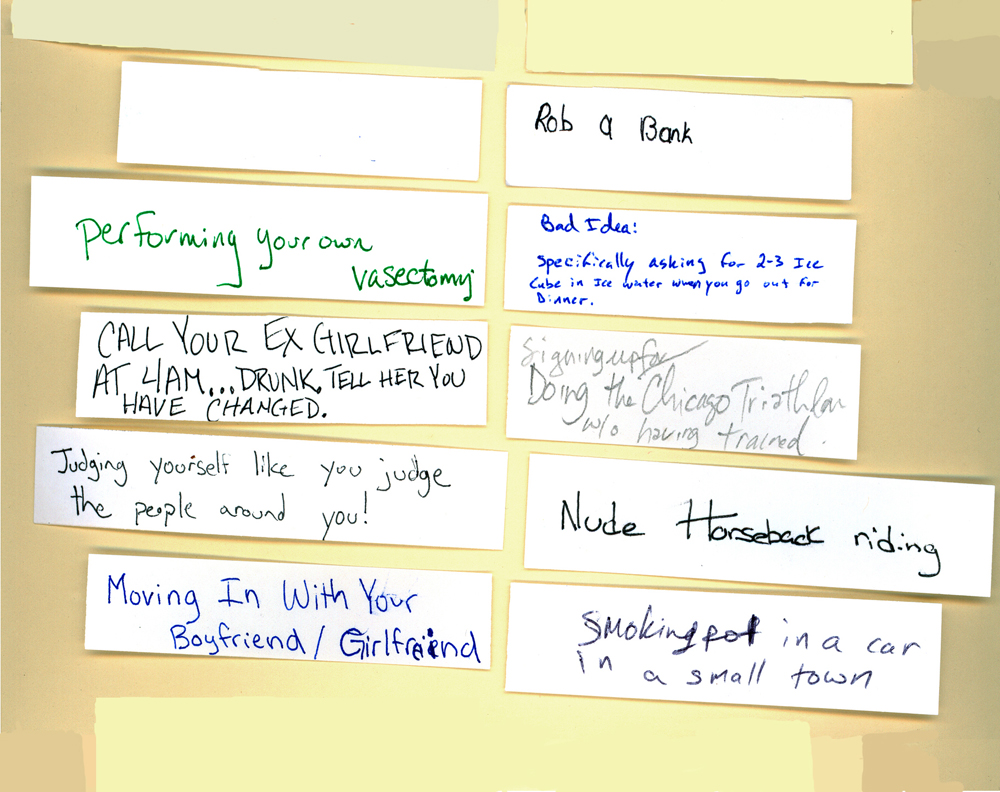 Rob a Bank
Performing your own
vasectomy
Bad Idea:
Specifically asking for 2-3 Ice
Cube in Ice water when you go out for
Dinner.
CALL YOUR EX GIRLFRIEND
AT 4AM...DRUNK. TELL HER YOU
HAVE CHANGED.
Signing up for
Doing the Chicago Triathlon
w/o having trained.
Judging yourself like you judge
the people around you!
Nude Horseback riding
Moving In With Your
Boyfriend / Girlfriend
Smoking pot in a car
in a small town